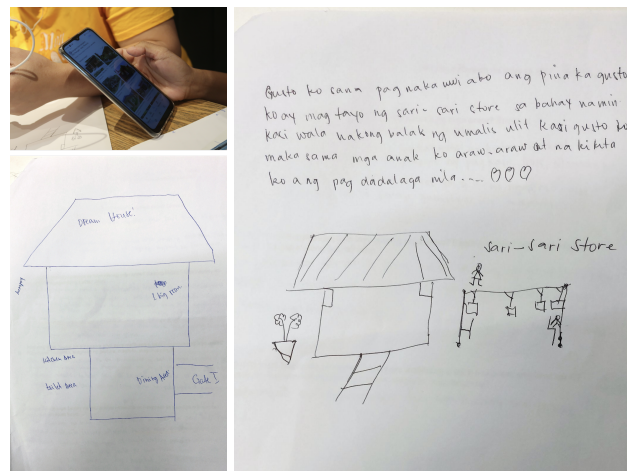 Dream House
Living room
Dining Area
Gate I
Gusto ko sana pag naka uwi ako ang pinaka gusto
ko ay mag tayo ng sari-sari store sa bahay namin
kasi wala nakong balak ng umalis ulit kasi gusto ko
maka sama mga anak ko araw-araw at na kikita
ko ang pag dadalaga nila....
sari-sari store